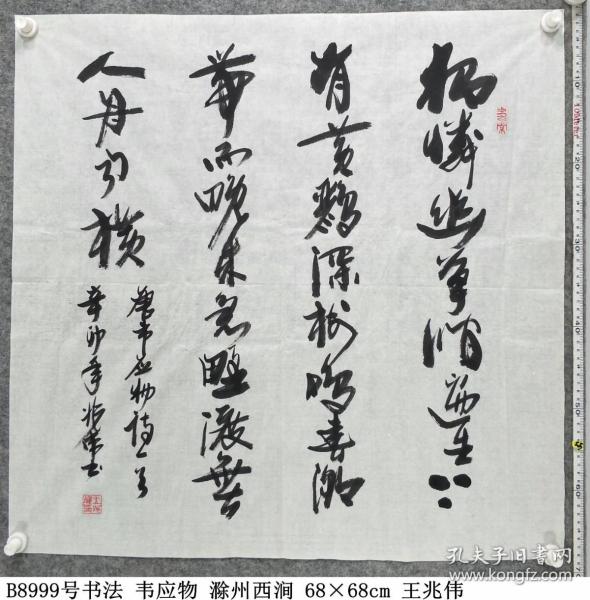 独憐幽草澗邊生上
有黄鸝深树鳴春潮
帶雨晚来急野渡無
人舟自横
唐韦应物诗一首
辛卯年兆偉书
孔夫子旧书网
www.kongfz.com
B8999号书法 韦应物 滁州西涧 68×68cm 王兆伟